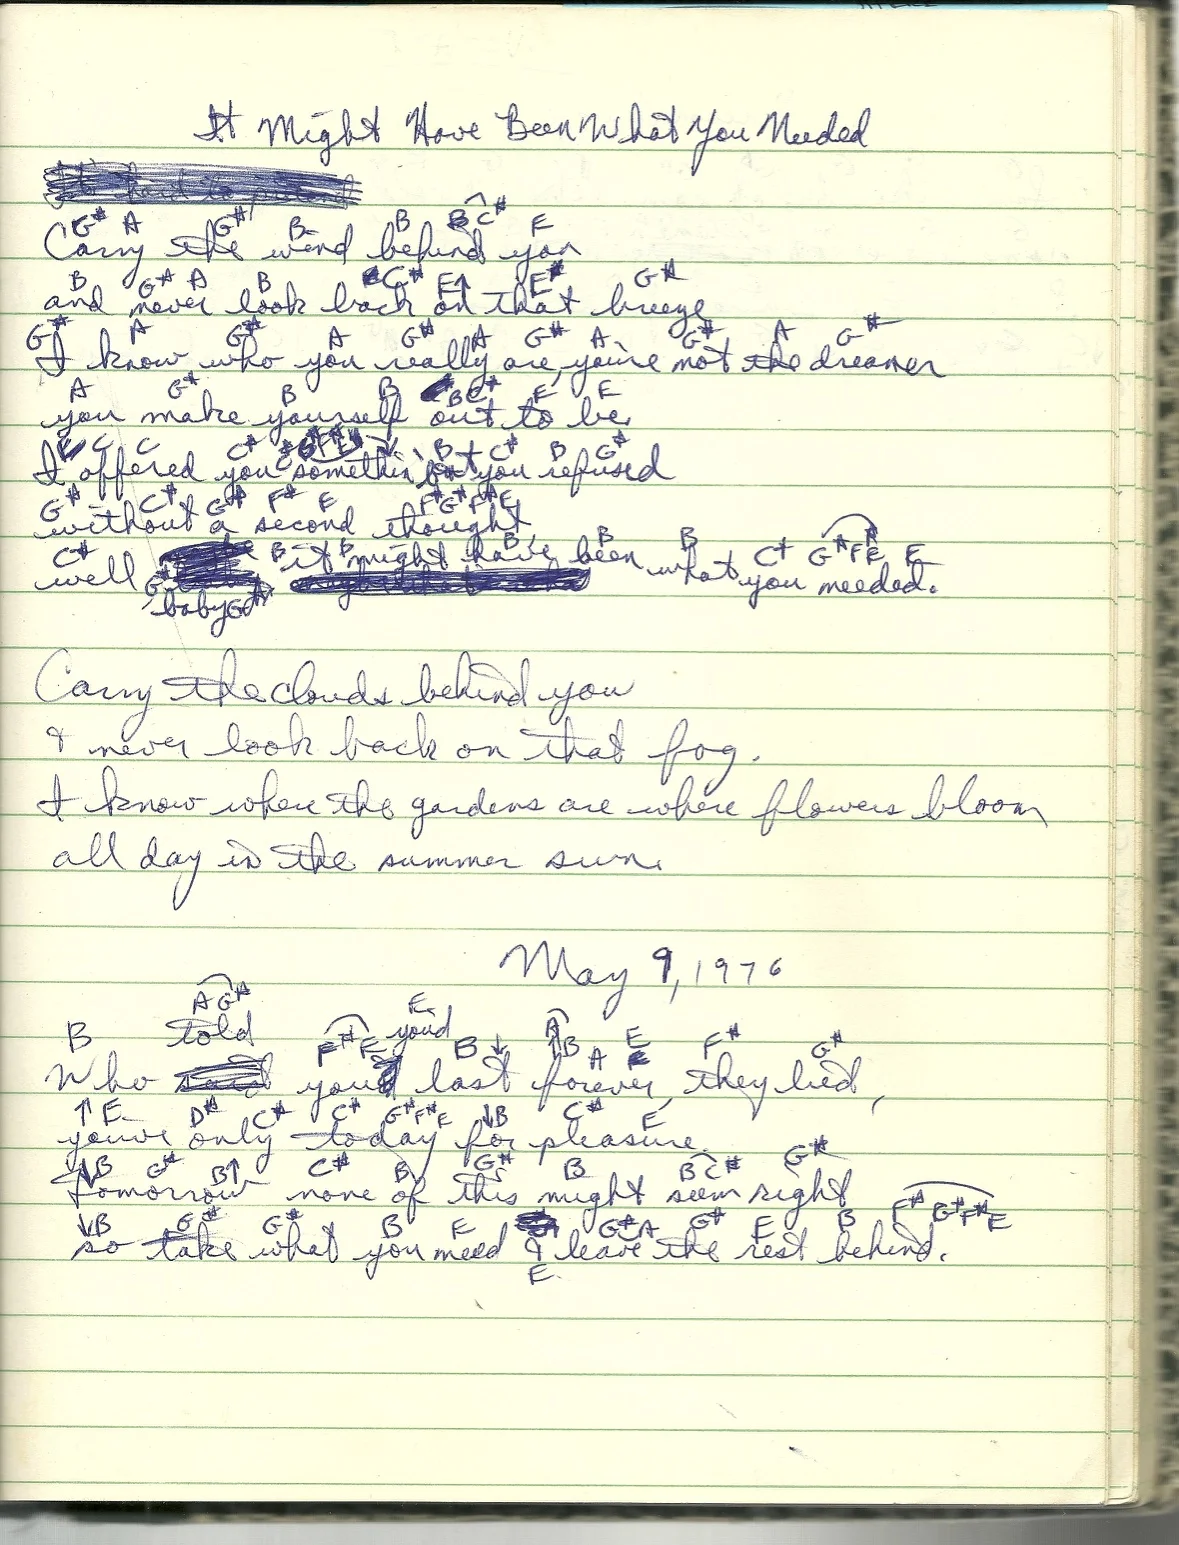 It Might Have Been What You Needed
G# A G# B B B C# E
Carry the wind behind you
B G# A B C# E↑ E# G#
and never look back on that breeze
G# A G# A G# A G# A G# A G#
I know who you really are, you're not the dreamer
A G# B B B C# E E
you make yourself out to be.
C C C# B C# B G#
I offered you somethin' but you refused
G# C# G# F# E F# G# F# E
without a second thought,
C# B B B B B C# G# F# E E
well baby it might have been what you needed.
Carry the clouds behind you
& never look back on that fog.
I know where the gardens are where flowers bloom
all day in the summer sun.
May 9, 1976
A G#
B told F# E E you'd B↓ A ↑B A E F# G#
Who you last forever, they lied,
↑E D# C# C# G# F# E ↓B C# E
you've only today for pleasure.
↓B G# B↑ C# B G# B B C# G#
Tomorrow none of this might seem right
↓B G# G# B E G# A G# E B F# G# F# E
so take what you need & leave the rest behind.
E